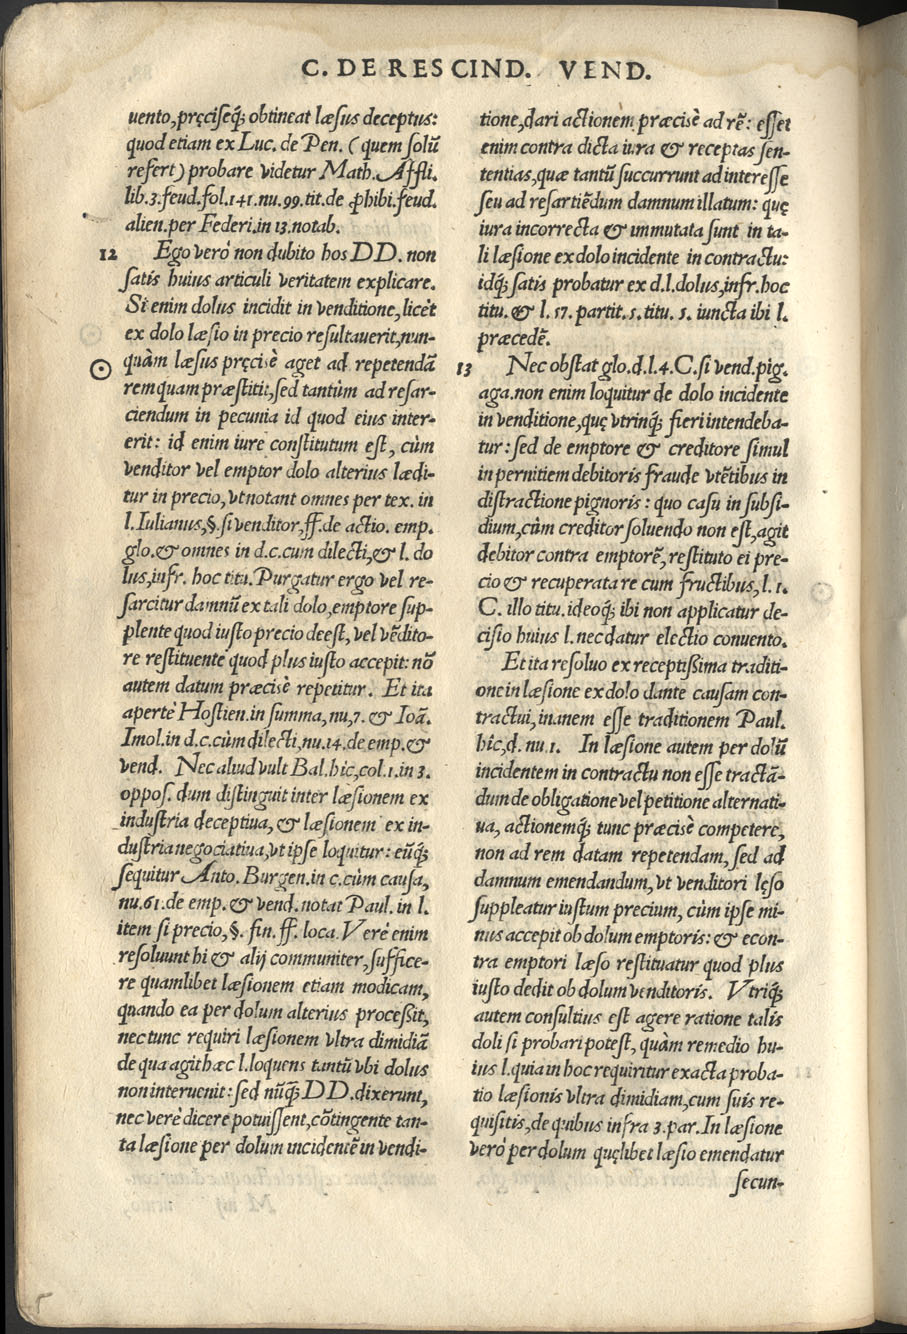 C. DE RESCIND. VEND.
uento, pręciseq́; obtineat læsus deceptus:
quod etiam ex Luc. de Pen. (quem solũ
refert) probare videtur Math. Affli.
lib. 3. feud. fol. 141. nu. 99. tit. de ꝓhibi. feud.
alien. per Federi. in 13. notab.
12 Ego verò non dubito hos DD. non
satis huius articuli veritatem explicare.
Si enim dolus incidit in venditione, licèt
ex dolo læsio in precio resultauerit, nun-
quàm læsus pręcisè aget ad repetendã
rem quam præstitit, sed tantùm ad resar-
ciendum in pecunia id quod eius inter-
erit: id enim iure constitutum est, cùm
venditor vel emptor dolo alterius lædi-
tur in precio, vt notant omnes per tex. in
l. Iulianus, §. si venditor, ff. de actio. emp.
glo. & omnes in d. c. cum dilecti, & l. do
lus, infr. hoc titu. Purgatur ergo vel re-
sarcitur damnũ ex tali dolo, emptore sup-
plente quod iusto precio deest, vel vẽdito-
re restituente quod plus iusto accepit: nõ
autem datum præcisè repetitur. Et ita
apertè Hostien. in summa, nu, 7. & Ioã.
Imol. in d. c. cùm dilecti, nu. 14. de emp. &
vend. Nec aliud vult Bal. hic, col. 1. in 3.
oppos. dum distinguit inter læsionem ex
industria deceptiua, & læsionem ex in-
dustria negociatiua, vt ipse loquitur: eũq́;
sequitur Anto. Burgen. in c. cùm causa,
nu. 61. de emp. & vend. notat Paul. in l.
item si precio, §. fin. ff. loca. Verè enim
resoluunt hi & alij communiter, suffice-
re quamlibet læsionem etiam modicam,
quando ea per dolum alterius proceßit,
nec tunc requiri læsionem vltra dimidiã
de qua agit hæc l. loquens tantũ vbi dolus
non interuenit: sed nũq́; DD. dixerunt,
nec verè dicere potuissent, cõtingente tan-
ta læsione per dolum incidentẽ in vendi-
tione, dari actionem præcisè ad rẽ: esset
enim contra dicta iura & receptas sen-
tentias, quæ tantũ succurrunt ad interesse
seu ad resartiẽdum damnum illatum: quę
iura incorrecta & immutata sunt in ta-
li læsione ex dolo incidente in contractu:
idq́; satis probatur ex d. l. dolus, infr. hoc
titu. & l. 57. partit. 5. titu. 5. iuncta ibi l.
præcedẽ.
13 Nec obstat glo. d. l. 4. C. si vend. pig.
aga. non enim loquitur de dolo incidente
in venditione, quę vtrinq́; fieri intendeba-
tur: sed de emptore & creditore simul
in pernitiem debitoris fraude vtẽtibus in
distractione pignoris: quo casu in subsi-
dium, cùm creditor soluendo non est, agit
debitor contra emptorẽ, restituto ei pre-
cio & recuperata re cum fructibus, l. 1.
C. illo titu. ideoq́; ibi non applicatur de-
cisio huius l. nec datur electio conuento.
Et ita resoluo ex receptißima traditi-
one in læsione ex dolo dante causam con-
tractui, inanem esse traditionem Paul.
hîc, d. nu. 1. In læsione autem per dolũ
incidentem in contractu non esse tractã-
dum de obligatione vel petitione alternati-
ua, actionemq́; tunc præcisè competere,
non ad rem datam repetendam, sed ad
damnum emendandum, vt venditori lęso
suppleatur iustum precium, cùm ipse mi-
nus accepit ob dolum emptoris: & econ-
tra emptori læso restituatur quod plus
iusto dedit ob dolum venditoris. Vtriq́;
autem consultius est agere ratione talis
doli si probari potest, quàm remedio hu-
ius l. quia in hoc requiritur exacta proba-
tio læsionis vltra dimidiam, cum suis re-
quisitis, de quibus infra 3. par. In læsione
verò per dolum quęlibet læsio emendatur
secun-